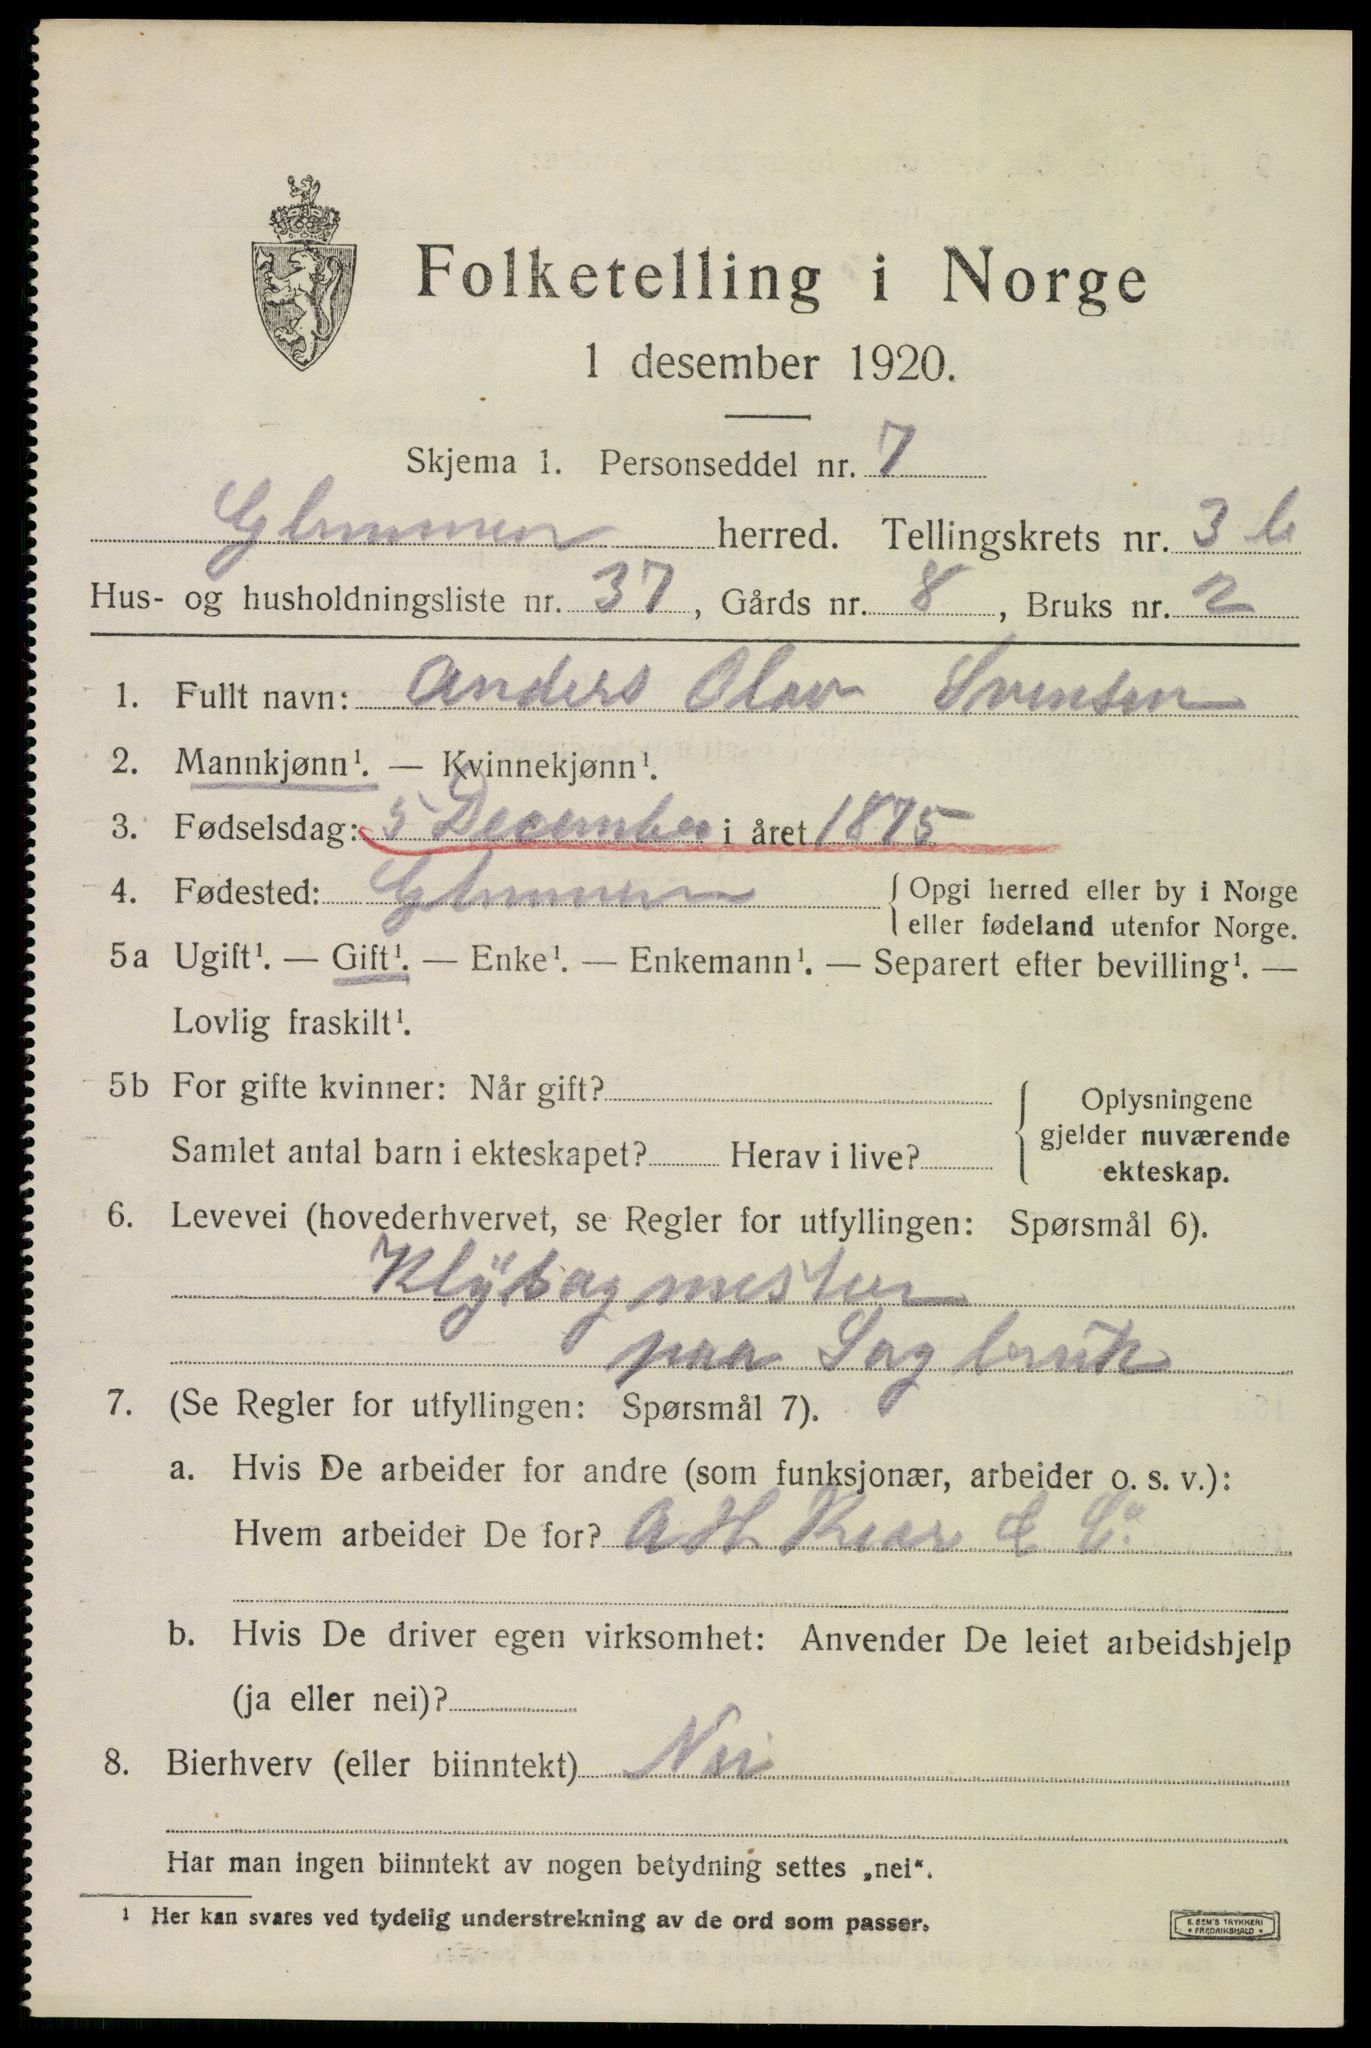 Folketelling i Norge
1 desember 1920.
Skjema 1. Personseddel nr. 7
Glemmen herred. Tellingskrets nr. 3 b
Hus- og husholdningsliste nr. 37, Gårds nr. 8, Bruks nr. 2
1. Fullt navn: Anders Olav Svensen
2. Mannkjønn¹. — Kvinnekjønn¹.
3. Fødselsdag: 5 December i året 1875
4. Fødested: Glemmen { Opgi herred eller by i Norge
eller fødeland utenfor Norge.
5a Ugift¹. — Gift¹. — Enke¹. — Enkemann¹. — Separert efter bevilling¹. —
Lovlig fraskilt¹.
5b For gifte kvinner: Når gift?
Samlet antal barn i ekteskapet? Herav i live?
Oplysningene
gjelder nuværende
ekteskap.
6. Levevei (hovederhvervet, se Regler for utfyllingen: Spørsmål 6).
Klýsagmester
paa Sagbruk
7. (Se Regler for utfyllingen: Spørsmål 7).
a. Hvis De arbeider for andre (som funksjonær, arbeider o. s. v.):
Hvem arbeider De for? A H Kiær & Co.
b. Hvis De driver egen virksomhet: Anvender De leiet arbeidshjelp
(ja eller nei)?
8. Bierhverv (eller biinntekt) Nei
Har man ingen biinntekt av nogen betydning settes „nei“.
¹ Her kan svares ved tydelig understrekning av de ord som passer.
E. SEM'S TRYKKERI
* FREDRIKSHALD *